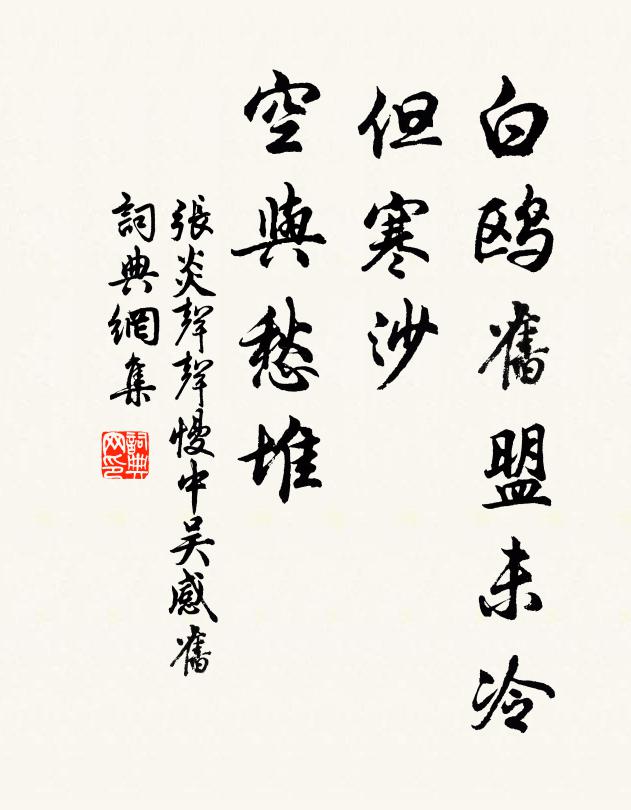 白鸥舊盟未冷
但寒沙
空與愁堆
張炎聲聲慢中吴感舊
詞典網集
詞典
网印